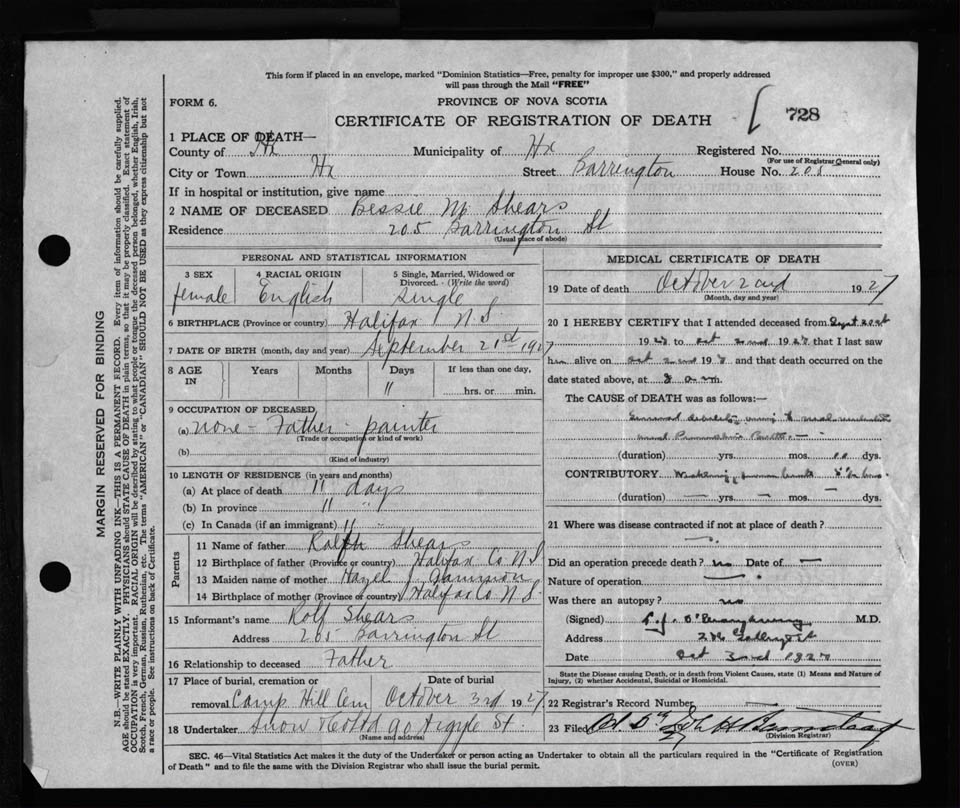 This form if placed in an envelope, marked "Dominion Statistics—Free, penalty for improper use $300," and properly addressed
will pass through the Mail "FREE"
FORM 6.
PROVINCE OF NOVA SCOTIA
728
CERTIFICATE OF REGISTRATION OF DEATH
1 PLACE OF DEATH—
County of Hx Municipality of Hx Registered No.
(For use of Registrar General only)
City or Town Hx Street Barrington House No. 205
If in hospital or institution, give name
2 NAME OF DECEASED Bessie M Shears
Residence 205 Barrington St
(Usual place of abode)
PERSONAL AND STATISTICAL INFORMATION
3 SEX 4 RACIAL ORIGIN 5 Single, Married, Widowed or
Divorced. - (Write the word)
female English Single
6 BIRTHPLACE (Province or country) Halifax N.S.
7 DATE OF BIRTH (month, day and year) September 21st 1927
8 AGE IN Years Months Days If less than one day,
11 hrs. or min.
9 OCCUPATION OF DECEASED
(a) none - Father - painter
(Trade or occupation or kind of work)
(b)
(Kind of industry)
10 LENGTH OF RESIDENCE (in years and months)
(a) At place of death 11 days
(b) In province 11 "
(c) In Canada (if an immigrant) 11
Parents
11 Name of father Ralph Shears
12 Birthplace of father (Province or country) Halifax Co N S
13 Maiden name of mother Hazel J
14 Birthplace of mother (Province or country) Halifax Co. N.S.
15 Informant's name Rolf Shears
Address 205 Barrington St
16 Relationship to deceased Father
17 Place of burial, cremation or Date of burial
removal Camp Hill Cem October 3rd 1927
18 Undertaker Snow Argyle St.
(Name and address)
MEDICAL CERTIFICATE OF DEATH
19 Date of death October 2nd 1927
(Month, day and year)
20 I HEREBY CERTIFY that I attended deceased from Sept
1927 to Oct 2nd 1927 that I last saw
her alive on Oct 2nd 1927 and that death occurred on the
date stated above, at a.m.
The CAUSE of DEATH was as follows:—
General debility owing to
(duration) yrs. mos. dys.
CONTRIBUTORY
(duration) — yrs. — mos. — dys.
21 Where was disease contracted if not at place of death?
Did an operation precede death? no Date of —
Nature of operation
Was there an autopsy? no
(Signed) M.D.
Address
Date Oct 3rd 1927
State the Disease causing Death, or in death from Violent Causes, state (1) Means and Nature of
Injury, (2) whether Accidental, Suicidal or Homicidal.
22 Registrar's Record Number
23 Filed
(Division Registrar)
SEC. 46—Vital Statistics Act makes it the duty of the Undertaker or person acting as Undertaker to obtain all the particulars required in the "Certificate of Registration
of Death" and to file the same with the Division Registrar who shall issue the burial permit.
(OVER)
MARGIN RESERVED FOR BINDING
N.B.—WRITE PLAINLY WITH UNFADING INK—THIS IS A PERMANENT RECORD. Every item of information should be carefully supplied.
AGE should be stated EXACTLY. PHYSICIANS should STATE CAUSE OF DEATH in plain terms, so that it may be properly classified. Exact statement of
OCCUPATION is very important. RACIAL ORIGIN will be described by stating to what people or tongue the deceased person belonged, whether English, Irish,
Scotch, French, German, Russian, Ruthenian, etc. The terms "AMERICAN" or "CANADIAN" SHOULD NOT BE USED as they express citizenship but not
a race or people. See instructions on back of Certificate.